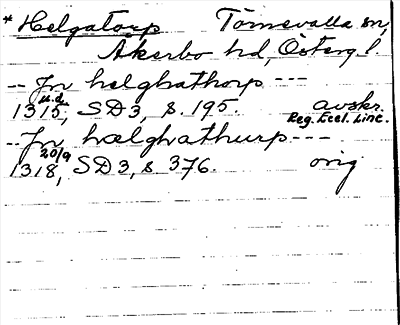 * Helgatorp Törnevalla sn,
Åkerbo hd, Österg. l.
-- Jn helghathorp ---
u.d.
1315, SD3, s. 195. avskr.
Reg. Eccl. Linc.
-- Jn hælghathurp ---
20/9
1318, SD3, s 376. orig